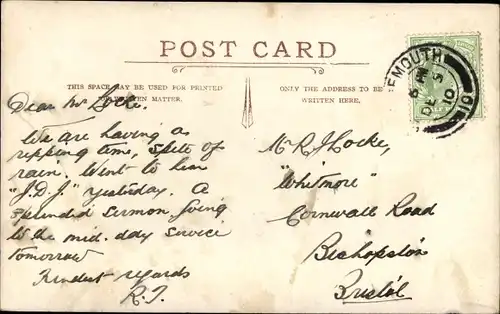 POST CARD
THIS SPACE MAY BE USED FOR PRINTED
OR WRITTEN MATTER.
ONLY THE ADDRESS TO BE
WRITTEN HERE.
EMOUTH
DE 5
10
Dear Mr Locke.
We are having a
ripping time, spite of
rain. Went to hear
"J.D.J." yesterday. A
splendid sermon going
to the mid. day service
tomorrow
Kindest regards
R.J.
Mr R J Locke,
"Whitmore"
Cornwall Road
Bishopston
Bristol